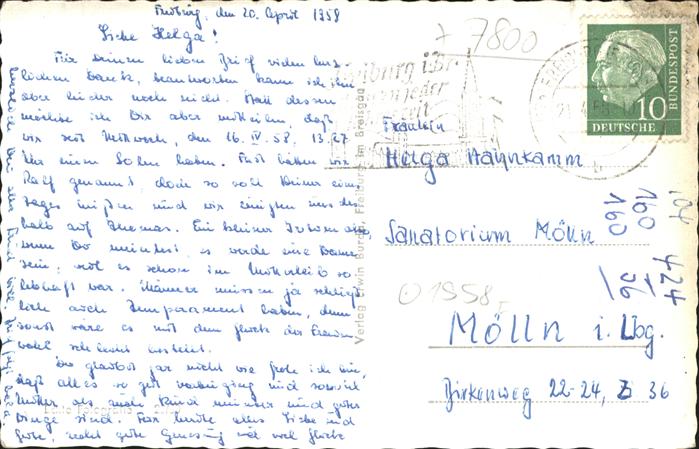 Freiburg, den 20. April 1958
Liebe Helga!
Für Deinen lieben Brief vielen herz-
lichen Dank, beantworten kann ich ihn
aber leider noch nicht. Statt dessen
möchte ich Dir aber mitteilen, daß
wir seit Mittwoch, den 16. IV. 58, 13.27
Uhr einen Sohn haben. Fast hätten wir
Ralf genannt, doch so soll Deiner eines
Tages heißen und wir einigten uns des-
halb auf Thomas. Ein kleiner Irrtum also,
wenn Du meintest, es werde eine Dame
sein, weil es schon im Mutterleib so
lebhaft war. Männer müssen ja schließ-
lich auch Temperament haben, denn
sonst wäre es mit dem Glück der Frauen
wohl schlecht bestellt.
Du glaubst gar nicht wie froh ich bin,
daß alles so gut vorbeiging und sowohl
Mutter als auch Kind munter und guter
Dinge sind. Für heute alles Liebe und
Gute, recht gute Genesung und viel Glück
Verlag Erwin Burda, Freiburg im Breisgau
+ 7800
Freiburg i. Br.
jeder
Zeit
10
DEUTSCHE
BUNDESPOST
Fräulein
Helga Hahnkamm
Sanatorium Mölln
Mölln i. Lbg.
Birkenweg 22-24, Z 36
1958
104
160
160
424
56